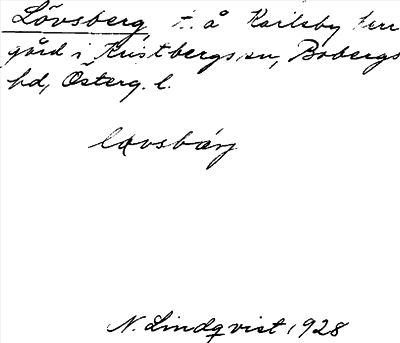 Lövsberg, t. å Karlsby herr
gård i Kristbergs sn, Bobergs
hd, Österg. l.
lövsbärj
N. Lindqvist 1928